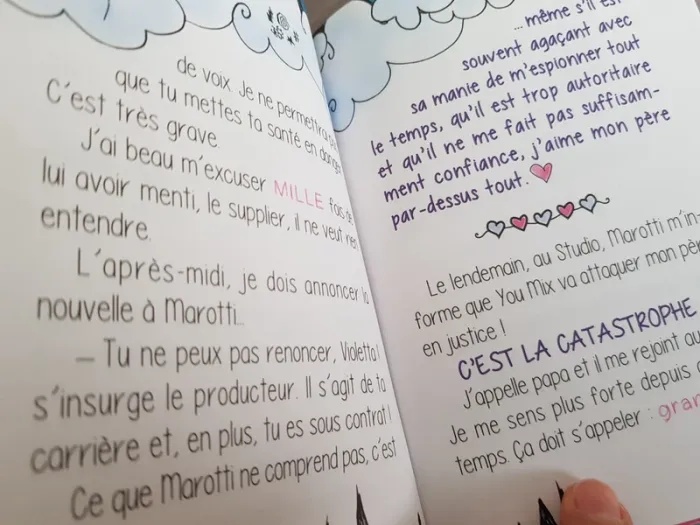 de voix. Je ne permettrai
que tu mettes ta santé en danger
C'est très grave.
J'ai beau m'excuser MILLE fois de
lui avoir menti, le supplier, il ne veut rien
entendre.
L'après-midi, je dois annoncer la
nouvelle à Marotti...
– Tu ne peux pas renoncer, Violetta !
s'insurge le producteur. Il s'agit de ta
carrière et, en plus, tu es sous contrat !
Ce que Marotti ne comprend pas, c'est
...même s'il est
souvent agaçant avec
sa manie de m'espionner tout
le temps, qu'il est trop autoritaire
et qu'il ne me fait pas suffisam-
ment confiance, j'aime mon père
par-dessus tout.
Le lendemain, au Studio, Marotti m'in-
forme que You Mix va attaquer mon père
en justice !
C'EST LA CATASTROPHE
J'appelle papa et il me rejoint au
Je me sens plus forte depuis
temps. Ça doit s'appeler : gran